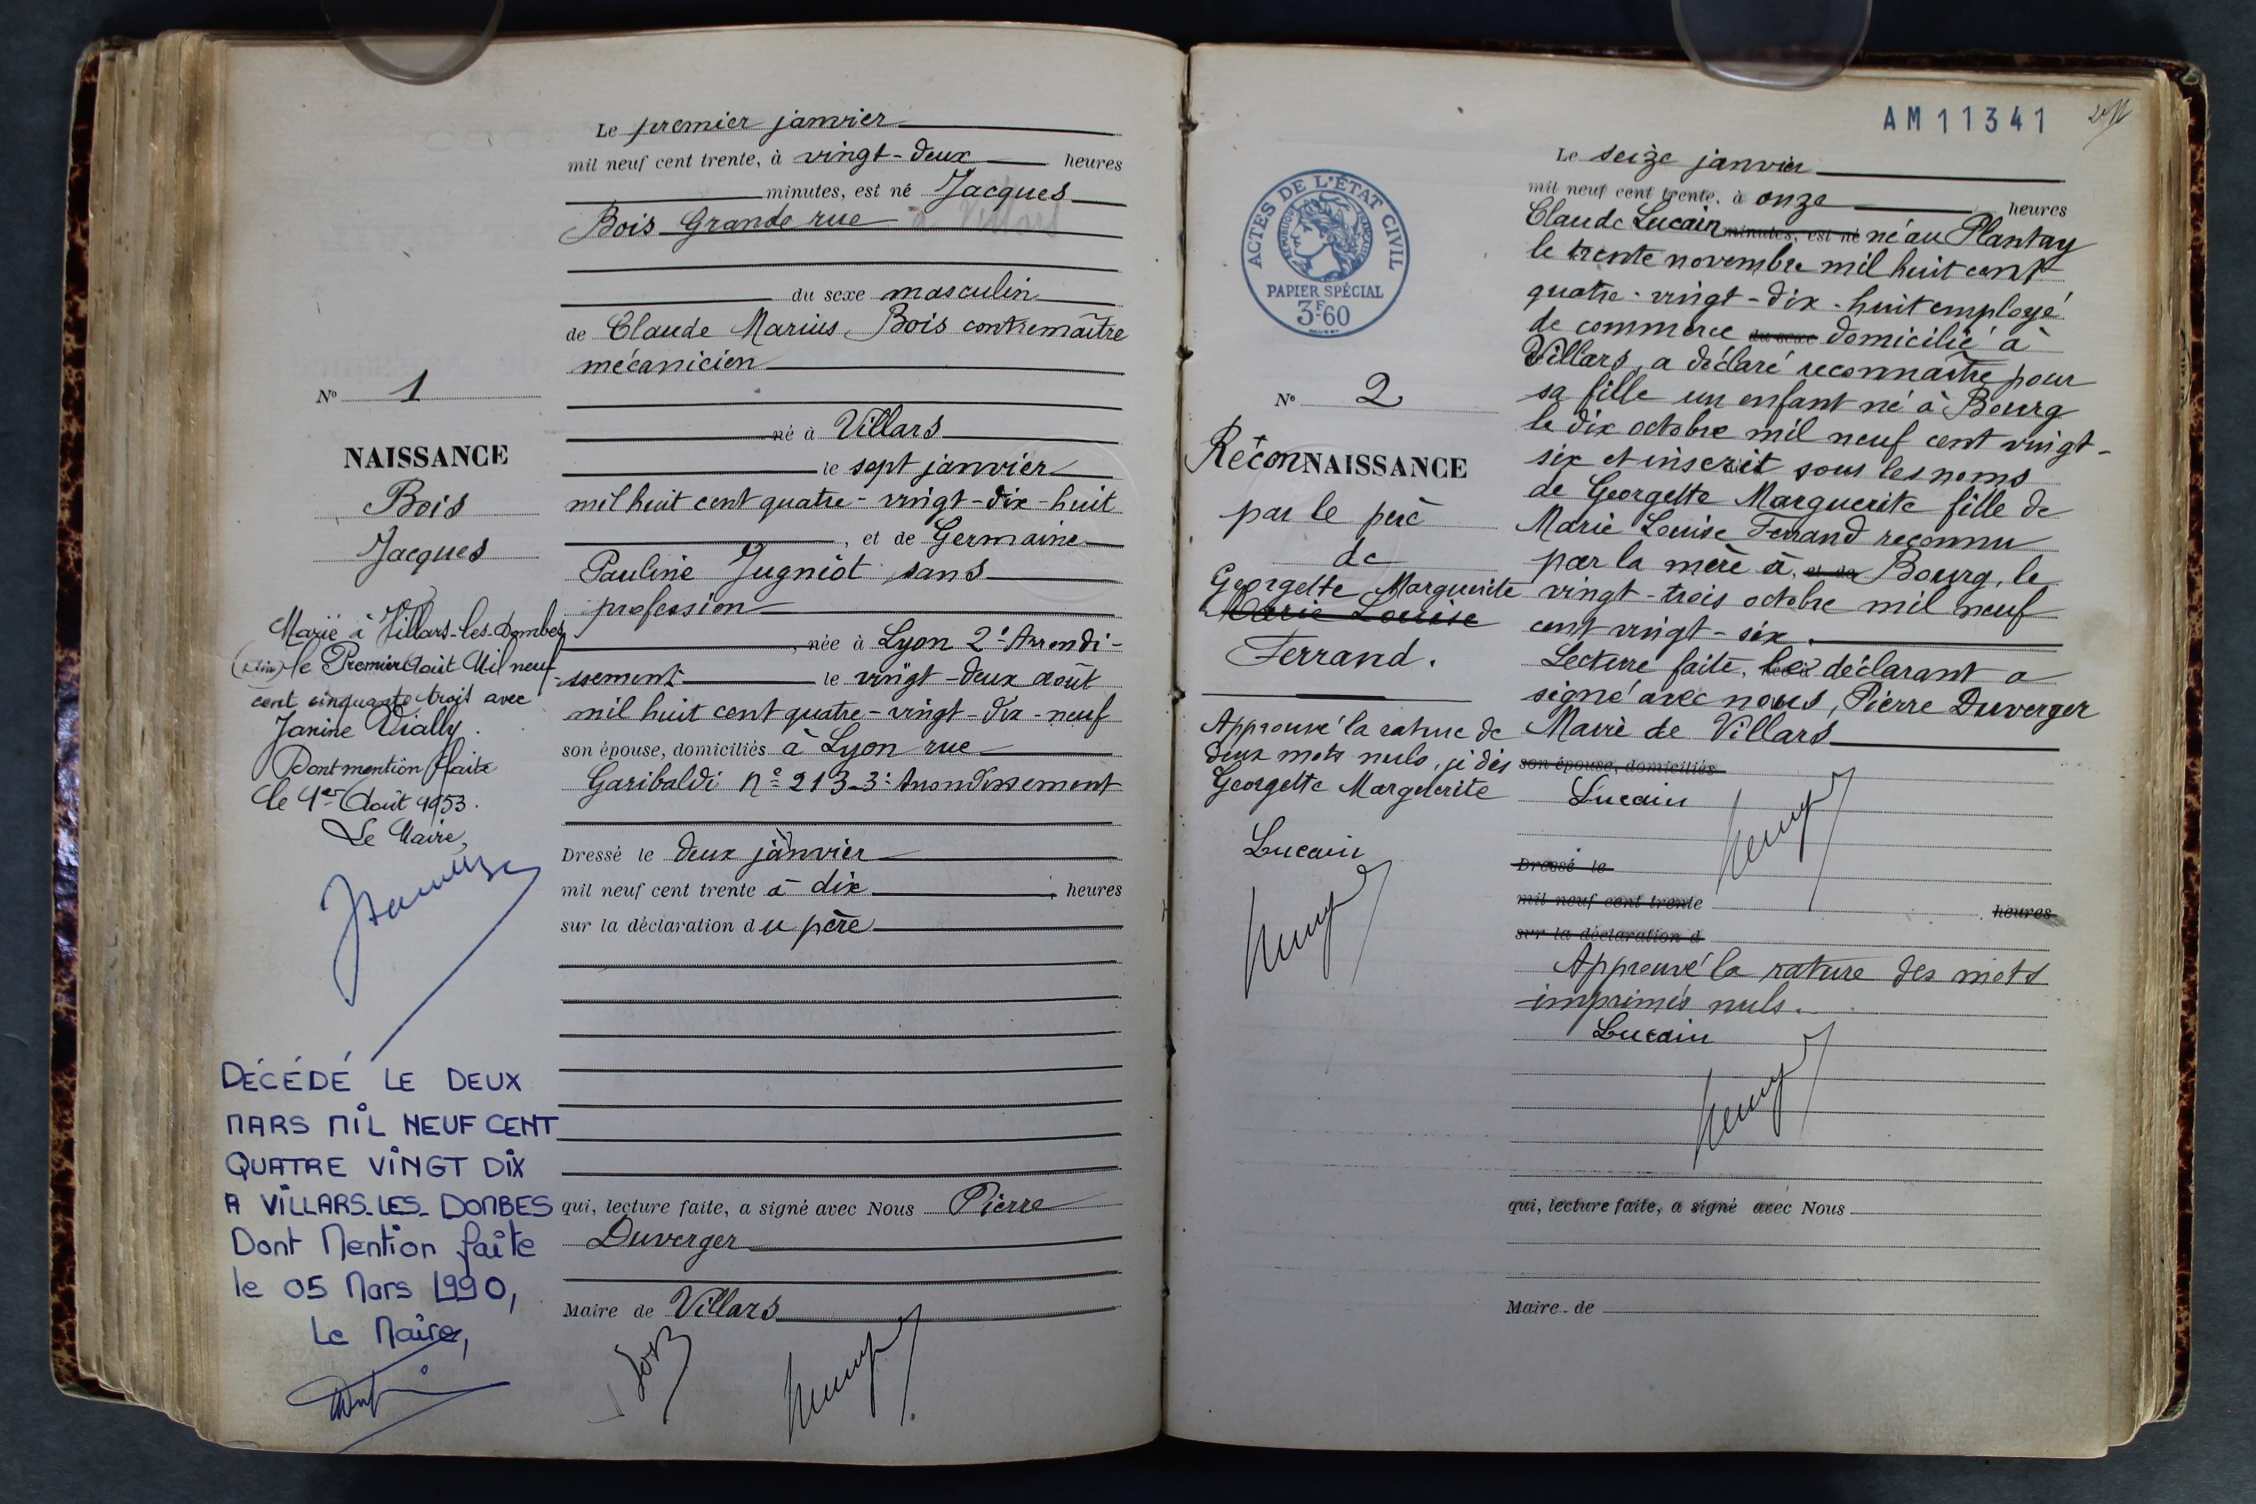 Le premier janvier
mil neuf cent trente, à vingt-deux heures
minutes, est né Jacques
Bois Grande rue à Villars
du sexe masculin
de Claude Marius Bois contremaître
mécanicien
né à Villars
le sept janvier
mil huit cent quatre-vingt-dix-huit
, et de Germaine
Pauline Jugniot sans
profession
, née à Lyon 2e Arrondi-
ssement le vingt-deux août
mil huit cent quatre-vingt-dix-neuf
son épouse, domiciliés à Lyon rue
Garibaldi no 213-3e Arrondissement
Dressé le deux janvier
mil neuf cent trente à dix heures
sur la déclaration du père
qui, lecture faite, a signé avec Nous Pierre
Duverger
Maire de Villars
No 1
NAISSANCE
Bois
Jacques
Marié à Villars-les-Dombes
(Ain) le Premier Août Mil neuf
cent cinquante trois avec
Janine Vially.
Dont mention faite
le 1er Août 1953.
Le Maire,
DÉCÉDÉ LE DEUX
MARS MIL NEUF CENT
QUATRE VINGT DIX
A VILLARS-LES-DOMBES
Dont Mention faite
le 05 Mars 1990,
Le Maire,
AM11341
ACTES DE L'ÉTAT CIVIL
RÉPUBLIQUE FRANÇAISE
PAPIER SPÉCIAL
3F60
No 2
RéconNAISSANCE
par le père
de
Georgette Marguerite
Marie Louise
Ferrand.
Approuvé la rature de
deux mots nuls, je dis
Georgette Marguerite
Lucain
Le seize janvier
mil neuf cent trente, à onze heures
Claude Lucain minutes, est né né au Plantay
le trente novembre mil huit cent
quatre-vingt-dix-huit employé
de commerce du sexe domicilié à
Villars, a déclaré reconnaître pour
sa fille un enfant né à Bourg
le dix octobre mil neuf cent vingt-
six et inscrit sous les noms
de Georgette Marguerite fille de
Marie Louise Ferrand reconnu
par la mère à, et de Bourg, le
vingt-trois octobre mil neuf
cent vingt-six.
Lecture faite, le déclarant a
signé avec nous, Pierre Duverger
Maire de Villars
son épouse, domiciliés
Lucain
Dressé le
mil neuf cent trente heures
sur la déclaration d
Approuvé la rature des mots
imprimés nuls.
Lucain
qui, lecture faite, a signé avec Nous
Maire de